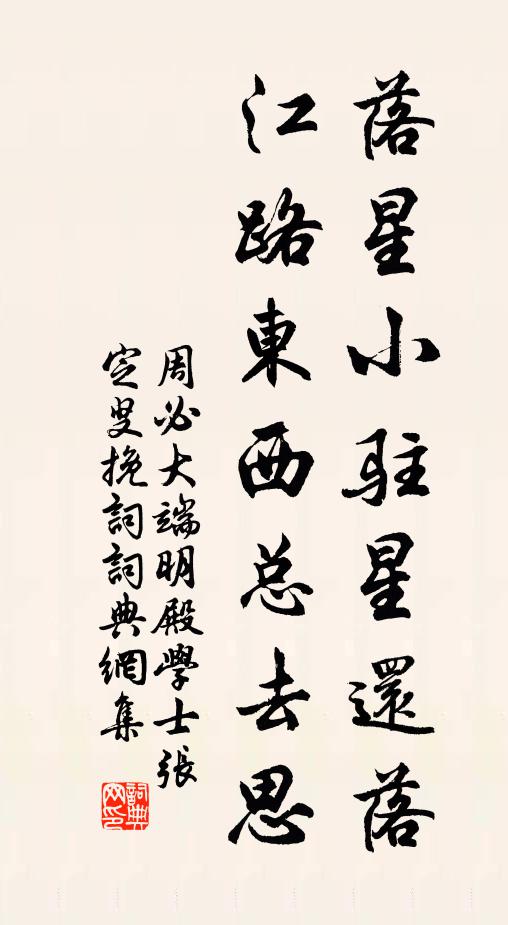 落星小驻星還落
江路東西总去思
周必大端明殿學士張
定叟挽詞詞典網集
詞典网印